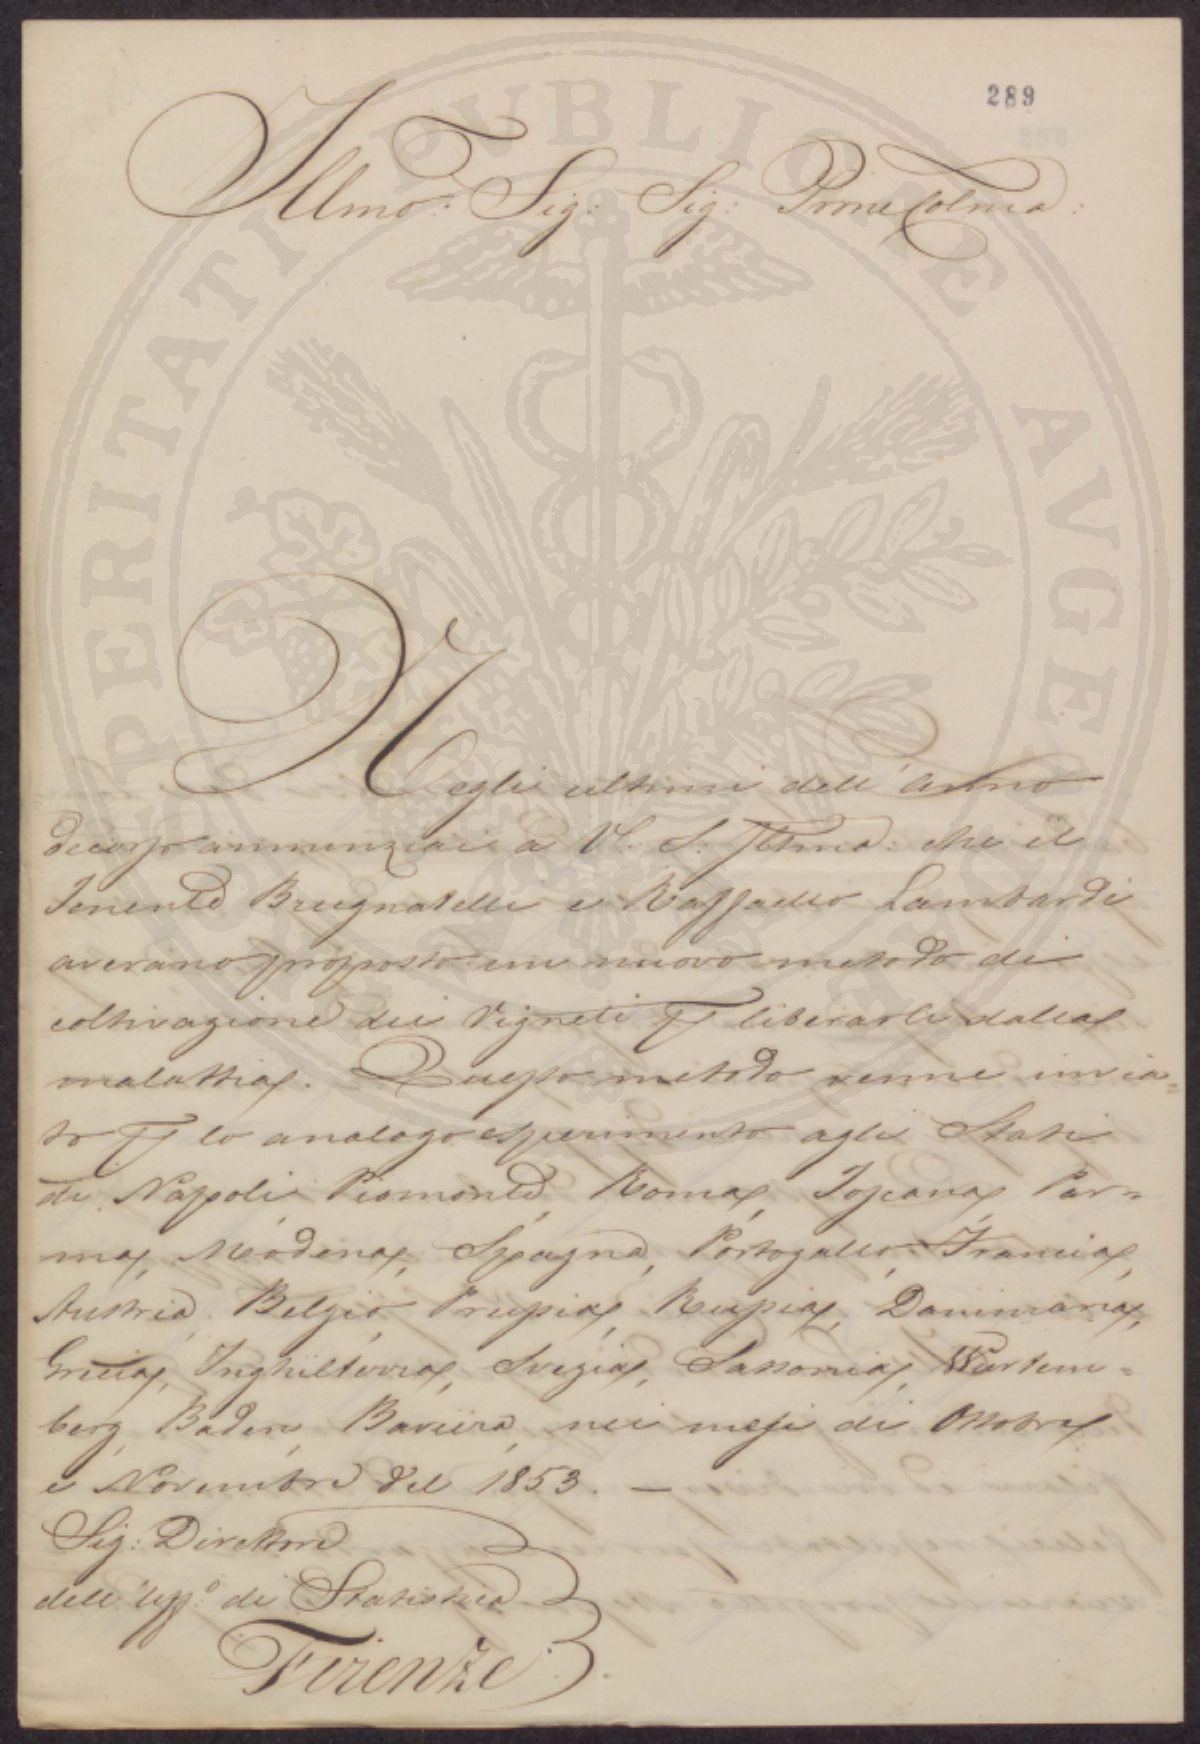 289
Illmo: Sig: Sig: Prone Colmo:
Negli ultimi dell'anno
decorso annunziai a V. S. Illma: che il
Tenente Brugnatelli e Raffaello Lambardi
averano proposto un nuovo metodo di
coltivazione dei Vigneti per liberarli dalla
malattia. Questo metodo venne invia=
to per lo analogo esperimento agli Stati
di Napoli, Piemonte, Roma, Toscana, Par=
ma, Modena, Spagna, Portogallo, Francia,
Austria, Belgio, Prussia, Russia, Danimarca,
Grecia, Inghilterra, Svezia, Sassonia, Wurtem=
berg, Baden, Baviera, nei mesi di Ottobre
e Novembre del 1853. —
Sig: Direttore
dell'Uffo: di Statistica
Firenze
PROSPERITATI PVBLICAE AVGENDAE